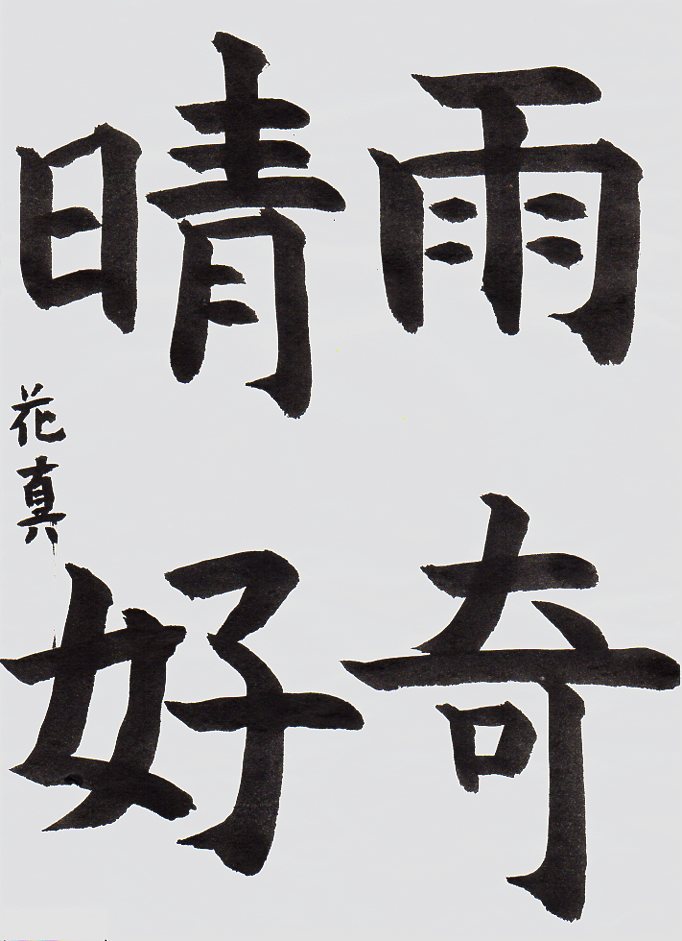 雨奇
晴好
花真